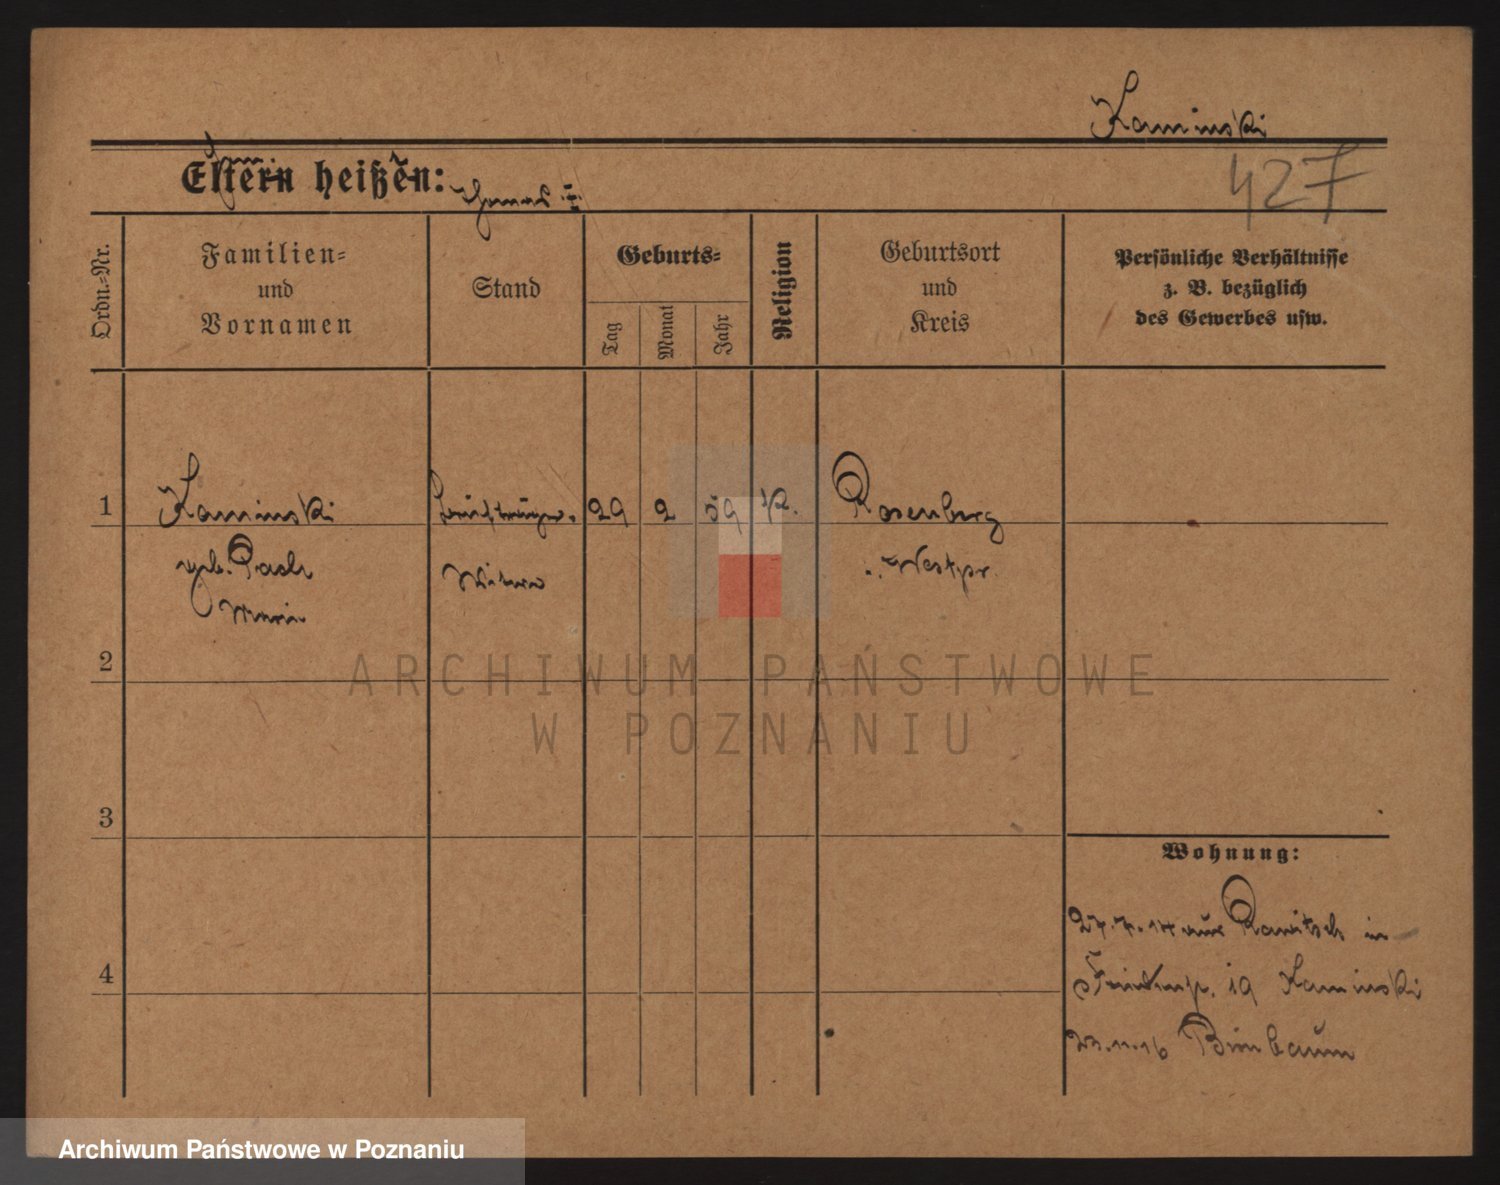 Kaminski
427
Eltern heißen:
Ordn.-Nr.
Familien-
und
Vornamen
Stand
Geburts-
Tag
Monat
Jahr
Religion
Geburtsort
und
Kreis
Persönliche Verhältnisse
z. B. bezüglich
des Gewerbes usw.
1
Kaminski
29 2 59 K.
Rosenberg
geb.
Witwe
Westpr.
Marie
2
ARCHIWUM PAŃSTWOWE
W POZNANIU
3
Wohnung:
27.7.14 aus Rawitsch in
4
19 Kaminski
23.11.16 Birnbaum
Archiwum Państwowe w Poznaniu